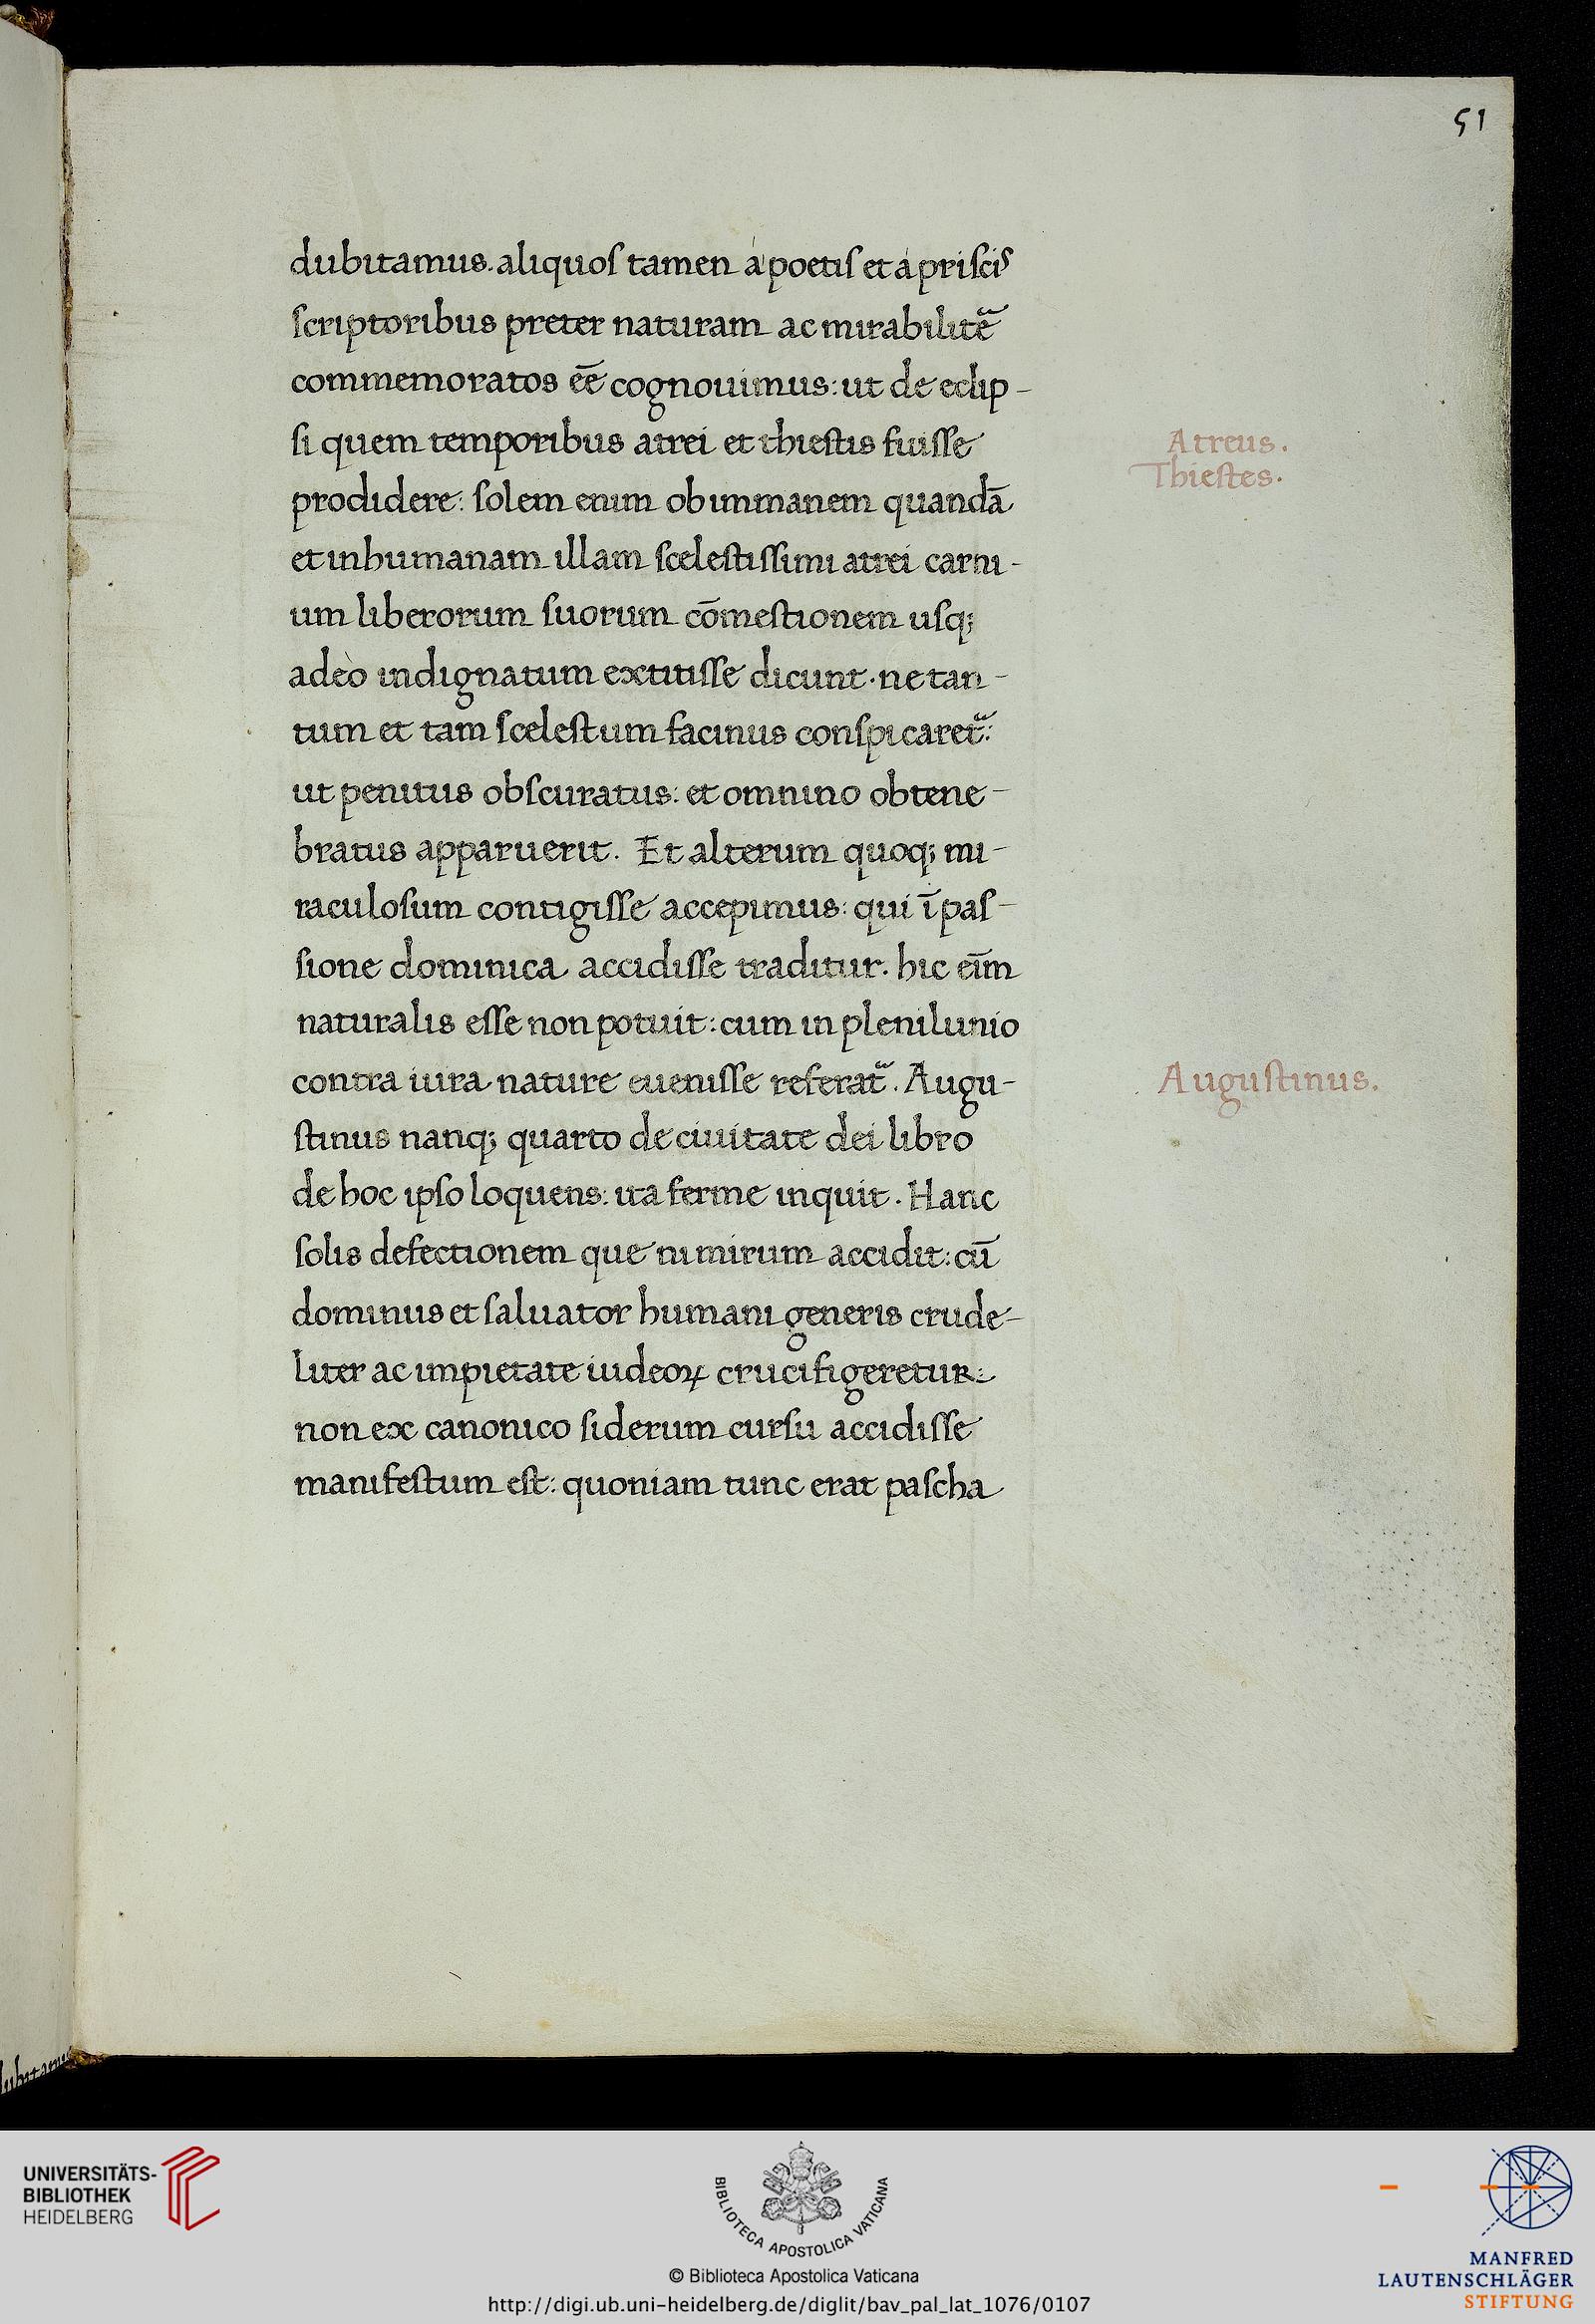 51
dubitamus. aliquoſ tamen a poetiſ et a priſciſ
ſcriptoribus preter naturam ac mirabilit̄e
commemoratos eē cognouimus: ut de eclip-
ſi quem temporibus atrei et thieſtis fuiſſe
Atreus.
Thieſtes.
prodidere: ſolem enim ob immanem quandā
et inhumanam illam ſceleſtiſſimi atrei carni-
um liberorum ſuorum cōmeſtionem uſq;
adeò indignatum extitiſſe dicunt. ne tan-
tum et tam ſceleſtum facinus conſpicaret᷑:
ut penitus obſcuratus: et omnino obtene-
bratus apparuerit. Et alterum quoq; mi-
raculoſum contigiſſe accepimus: qui ī paſ-
ſione dominica accidiſſe traditur. hic eīm
naturalis eſſe non potuit: cum in plenilunio
contra iura nature eueniſſe referat᷑. Augu-
Auguſtinus.
ſtinus nanq; quarto de ciuitate dei libro
de hoc ipſo loquens: ita ferme inquit. Hanc
ſolis defectionem que nimirum accidit: cū
dominus et ſaluator humani generis crude-
liter ac impietate iudeoꝝ crucifigeretur:
non ex canonico ſiderum curſu accidiſſe
manifeſtum eſt: quoniam tunc erat paſcha
UNIVERSITÄTS-
BIBLIOTHEK
HEIDELBERG
BIBLIOTECA APOSTOLICA VATICANA
© Biblioteca Apostolica Vaticana
http://digi.ub.uni-heidelberg.de/diglit/bav_pal_lat_1076/0107
MANFRED
LAUTENSCHLÄGER
STIFTUNG